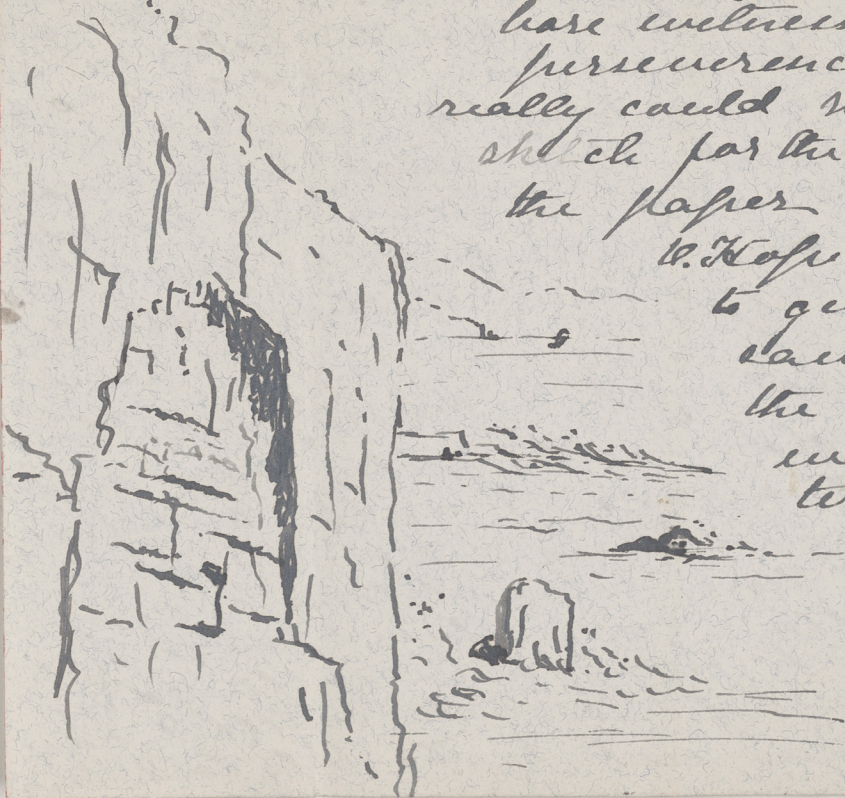 bore witness
perseverenc
really could n
sketch for the
the paper
C. Hope
to ge
saw
the
in
te